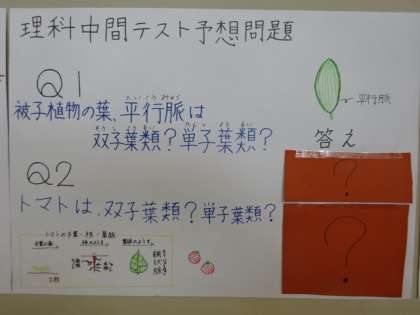 理科中間テスト予想問題
Q1
被子植物の葉、平行脈は
へいこうみゃく
双子葉類?単子葉類?
平行脈
答え
?
Q2
トマトは、双子葉類?単子葉類?
?